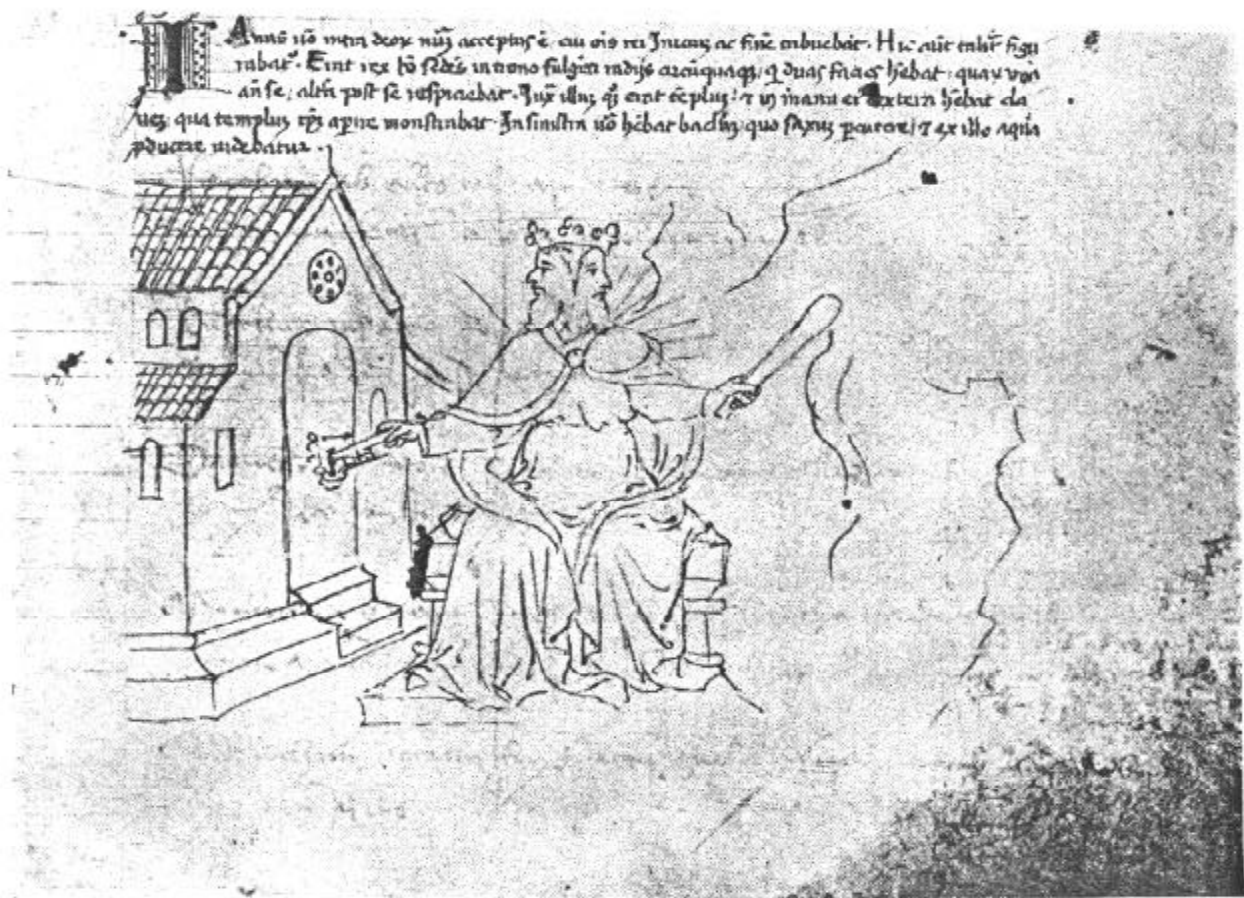 IAnus uo inter deox nuɱ acceptus ē. cui ois rei Iniciuɱ ac finē tribuebāt. Hic aūt talit̄ figu
rabat᷑. Erat rex hō sedēs in trono fulgēti radijs circūquaqꝫ. q̇ duas facies h̄ebat. quaꝝ una
an̄ se, altā post se respiciebat. Iux̄ illuɱ q̇ꝫ erat tēpluɱ. ⁊ in manu ei dextera h̄ebat cla
ueɱ, qua templuɱ ip̄ꝫ aꝑire monstrabat. In sinistra uō h̄ebat baculū quo saxuɱ ꝑcutere, ⁊ ex illo aquā
ꝓducere uidebatur.